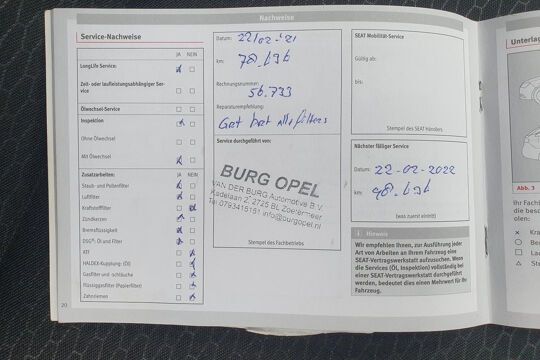 Nachweise
Service-Nachweise
JA NEIN
LongLife Service:
Zeit- oder laufleistungsabhängiger Ser-
vice
Ölwechsel-Service
Inspektion
Ohne Ölwechsel
Mit Ölwechsel
Zusatzarbeiten: JA NEIN
Staub- und Pollenfilter
Luftfilter
Kraftstofffilter
Zündkerzen
Bremsflüssigkeit
DSG®: Öl und Filter
ATF
HALDEX-Kupplung: (Öl)
Gasfilter und -schläuche
Flüssiggasfilter (Papierfilter)
Zahnriemen
20
Datum: 22/02-'21
km:
Rechnungsnummer:
56.733
Reparaturempfehlung:
Service durchgeführt von:
BURG OPEL
VAN DER BURG Automotive B.V.
Kadelaan 2, 2725 BL Zoetermeer
Tel 0793415151 info@burgopel.nl
Stempel des Fachbetriebs
SEAT Mobilität-Service
Gültig ab:
bis:
Stempel des SEAT Händlers
Nächster fälliger Service
Datum: 22-02-2022
km:
(was zuerst eintritt)
i Hinweis
Wir empfehlen Ihnen, zur Ausführung jeder
Art von Arbeiten an Ihrem Fahrzeug eine
SEAT-Vertragswerkstatt aufzusuchen. Wenn
die Services (Öl, Inspektion) vollständig bei
einer SEAT-Vertragswerkstatt durchgeführt
werden, bedeutet dies einen Mehrwert für Ihr
Fahrzeug.
Unterlag
Abb. 3
Ihr Fachl
die besc
olen: